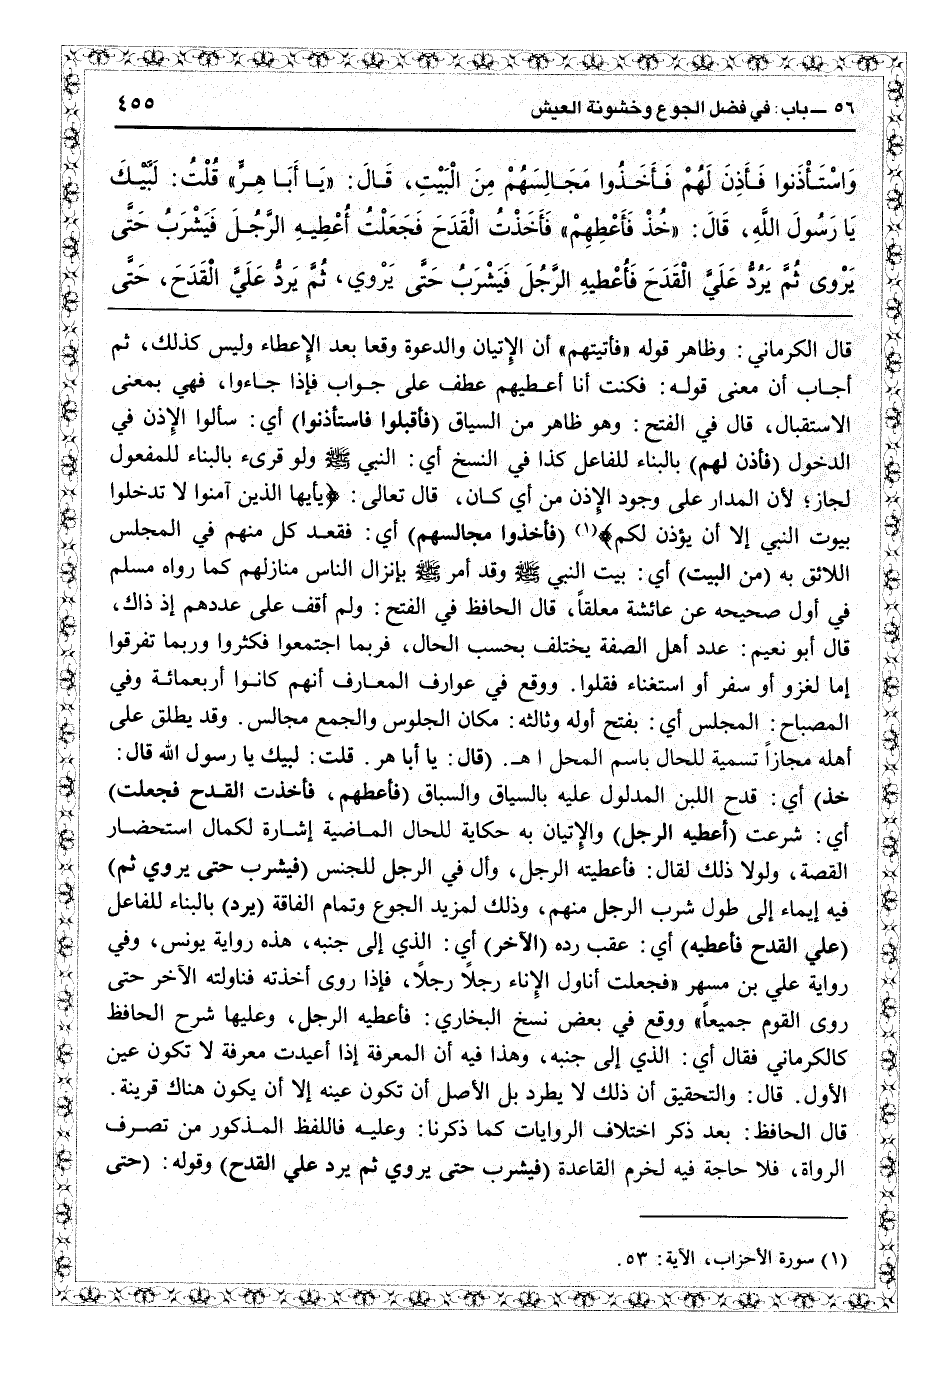 ٥٦ ــ باب: في فضل الجوع وخشونة العيش
٤٥٥
وَاسْتَأْذَنوا فَأَذِنَ لَهُمْ فَأَخَذُوا مَجَالِسَهُمْ مِنَ الْبَيْتِ، قَالَ: «يَا أَبَا هِرٍّ» قُلْتُ: لَبَّيْكَ
يَا رَسُولَ اللَّهِ، قَالَ: «خُذْ فَأَعْطِهِمْ» فَأَخَذْتُ الْقَدَحَ فَجَعَلْتُ أُعْطِيهِ الرَّجُلَ فَيَشْرَبُ حَتَّى
يَرْوى ثُمَّ يَرُدُّ عَلَيَّ الْقَدَحَ فَأُعْطيهِ الرَّجُلَ فَيَشْرَبُ حَتَّى يَرْوي، ثُمَّ يَردُّ عَلَيَّ الْقَدَحَ، حَتَّى
قال الكرماني: وظاهر قوله «فأتيتهم» أن الإتيان والدعوة وقعا بعد الإعطاء وليس كذلك، ثم
أجاب أن معنى قوله: فكنت أنا أعطيهم عطف على جواب فإذا جاءوا، فهي بمعنى
الاستقبال، قال في الفتح: وهو ظاهر من السياق (فأقبلوا فاستأذنوا) أي: سألوا الإذن في
الدخول (فأذن لهم) بالبناء للفاعل كذا في النسخ أي: النبي ﷺ ولو قرىء بالبناء للمفعول
لجاز؛ لأن المدار على وجود الإذن من أي كان، قال تعالى: ﴿يأيها الذين آمنوا لا تدخلوا
بيوت النبي إلا أن يؤذن لكم﴾(١) (فأخذوا مجالسهم) أي: فقعد كل منهم في المجلس
اللائق به (من البيت) أي: بيت النبي ﷺ وقد أمر ﷺ بإنزال الناس منازلهم كما رواه مسلم
في أول صحيحه عن عائشة معلقاً، قال الحافظ في الفتح: ولم أقف على عددهم إذ ذاك،
قال أبو نعيم: عدد أهل الصفة يختلف بحسب الحال، فربما اجتمعوا فكثروا وربما تفرقوا
إما لغزو أو سفر أو استغناء فقلوا. ووقع في عوارف المعارف أنهم كانوا أربعمائة وفي
المصباح: المجلس أي: بفتح أوله وثالثه: مكان الجلوس والجمع مجالس. وقد يطلق على
أهله مجازاً تسمية للحال باسم المحل اهـ. (قال: يا أبا هر. قلت: لبيك يا رسول الله قال:
خذ) أي: قدح اللبن المدلول عليه بالسياق والسباق (فأعطهم، فأخذت القدح فجعلت)
أي: شرعت (أعطيه الرجل) والإتيان به حكاية للحال الماضية إشارة لكمال استحضار
القصة، ولولا ذلك لقال: فأعطيته الرجل، وأل في الرجل للجنس (فيشرب حتى يروي ثم)
فيه إيماء إلى طول شرب الرجل منهم، وذلك لمزيد الجوع وتمام الفاقة (يرد) بالبناء للفاعل
(علي القدح فأعطيه) أي: عقب رده (الآخر) أي: الذي إلى جنبه، هذه رواية يونس، وفي
رواية علي بن مسهر «فجعلت أناول الإناء رجلاً رجلاً، فإذا روى أخذته فناولته الآخر حتى
روى القوم جميعاً» ووقع في بعض نسخ البخاري: فأعطيه الرجل، وعليها شرح الحافظ
كالكرماني فقال أي: الذي إلى جنبه، وهذا فيه أن المعرفة إذا أعيدت معرفة لا تكون عين
الأول. قال: والتحقيق أن ذلك لا يطرد بل الأصل أن تكون عينه إلا أن يكون هناك قرينة.
قال الحافظ: بعد ذكر اختلاف الروايات كما ذكرنا: وعليه فاللفظ المذكور من تصرف
الرواة، فلا حاجة فيه لخرم القاعدة (فيشرب حتى يروي ثم يرد علي القدح) وقوله: (حتى
(١) سورة الأحزاب، الآية: ٥٣.